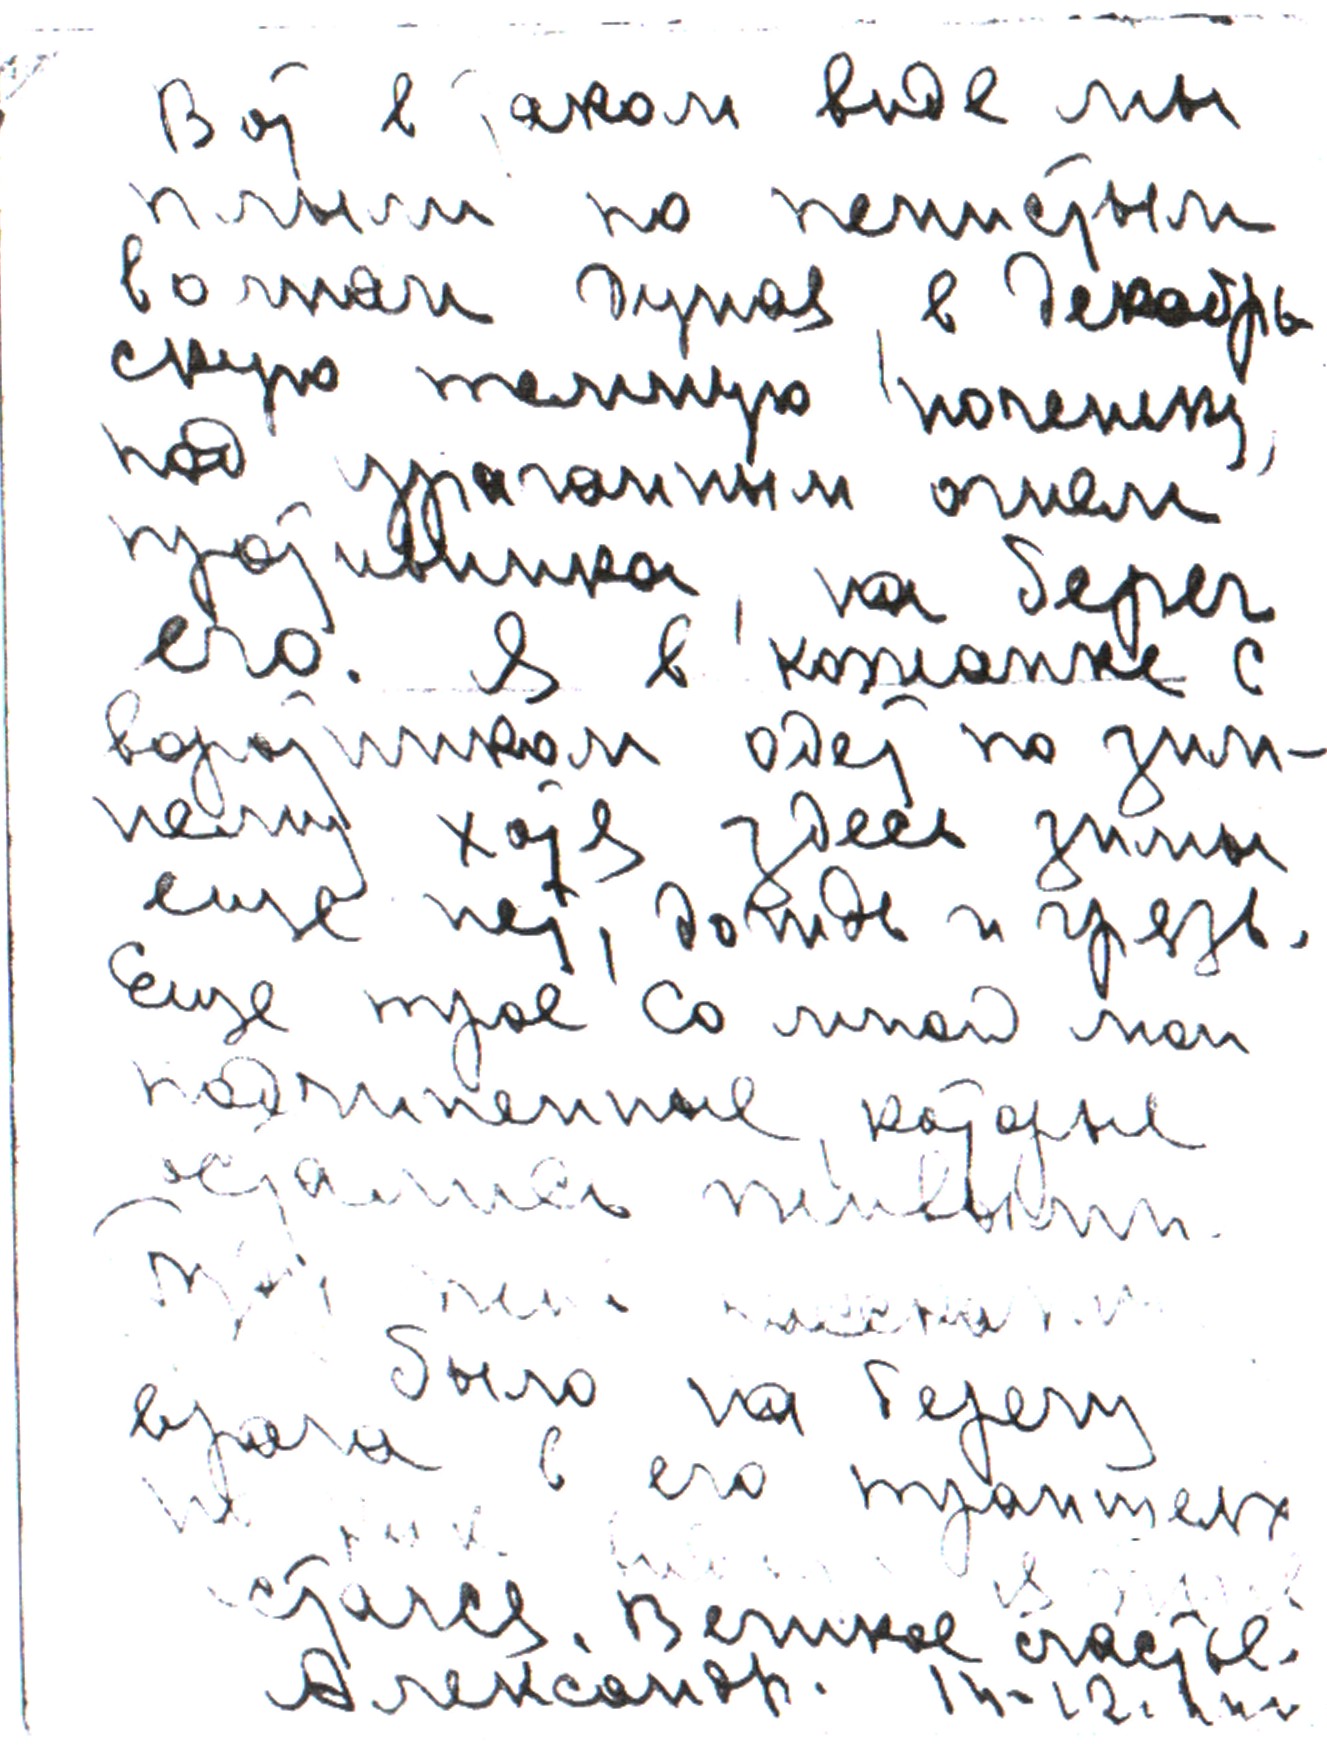 Вот в таком виде мы
плыли по пенистым
волнам Дуная, в декабрь
скую темную ноченьку,
под ураганным огнем
противника, на берег
его. Я в кожанке с
воротником одет по зим-
нему хотя здесь зимы
еще нет, дождь и грязь.
Еще трое со мной мои
подчиненные, которые
остались живыми.
было на берегу
врага в его траншеях
стался. Великое счастье.
Александр. 14-12.44г